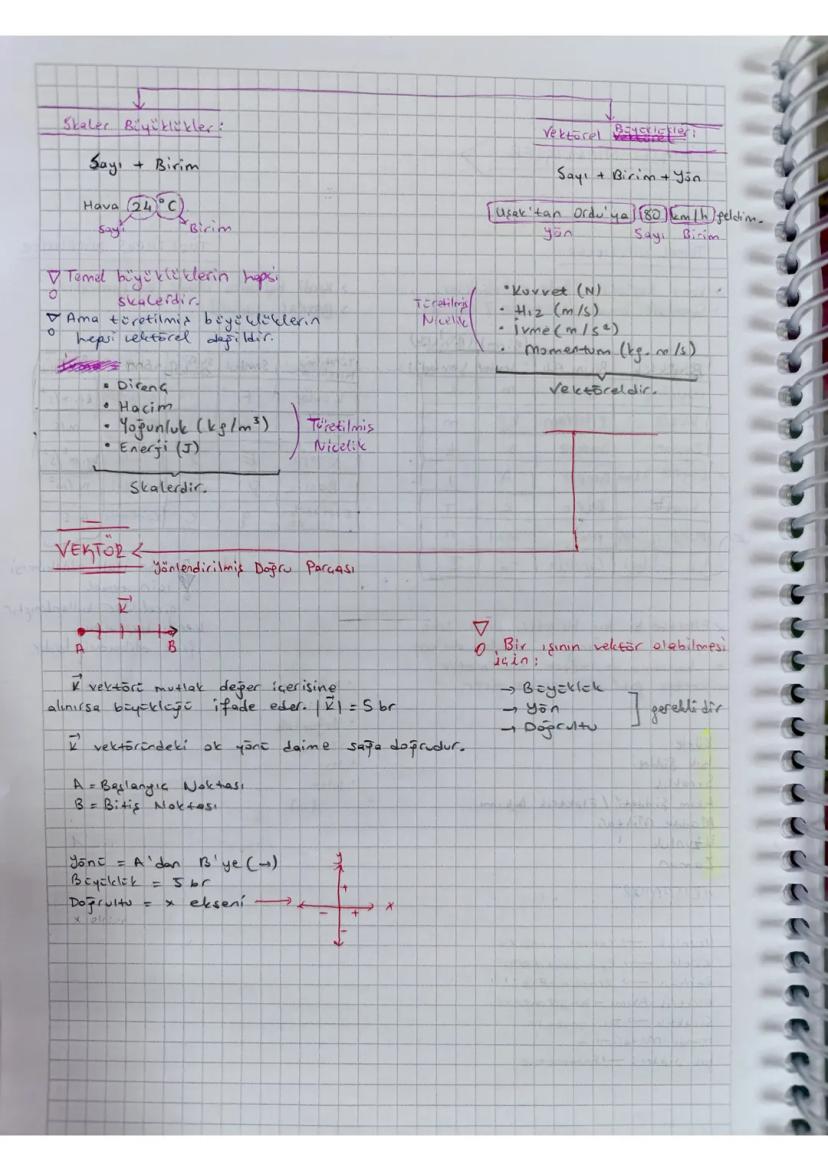 Skaler Büyüklükler:
Sayı + Birim
Hava 24 °C
Sayı Birim
Temel büyüklüklerin hepsi
skalerdir.
Ama türetilmiş büyüklüklerin
hepsi vektörel değildir.
• Direnç
• Hacim
• Yoğunluk (kg/m³)
• Enerji (J)
Türetilmiş
Nicelik
Skalerdir.
Vektörel Büyüklükler:
Sayı + Birim + Yön
Uşak'tan Ordu'ya 80 km/h geldim.
Yön Sayı Birim
Türetilmiş
Nicelik
• Kuvvet (N)
• Hız (m/s)
• İvme (m/s²)
• Momentum (kg. m/s)
Vektöreldir.
VEKTÖR
Yönlendirilmiş Doğru Parçası
K
A B
K vektörü mutlak değer içerisine
alınırsa büyüklüğü ifade eder. |K| = 5 br
K vektöründeki ok yönü daima sağa doğrudur.
A = Başlangıç Noktası
B = Bitiş Noktası
Yönü = A'dan B'ye (→)
Büyüklük = 5 br
Doğrultu = x ekseni →
y
+
- + x
-
Bir ışının vektör olabilmesi
için:
→ Büyüklük
→ Yön
→ Doğrultu
gereklidir